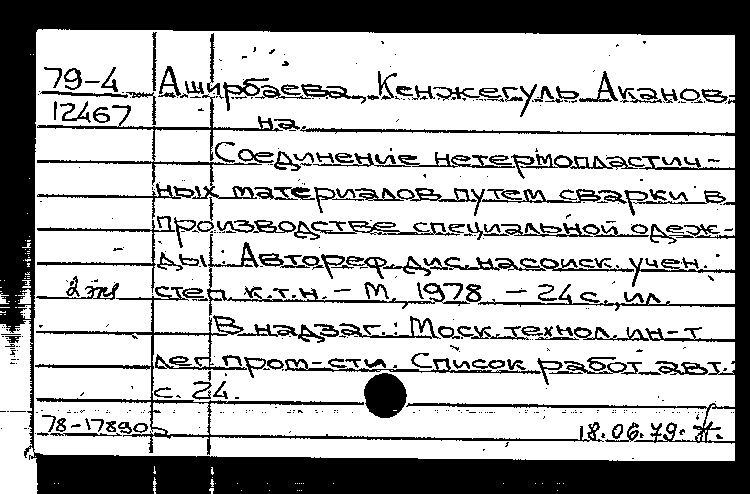 79-4 Аширбаева, Кенжегуль Аканов-
12467 на.
Соединение нетермопластич-
ных материалов путем сварки в
производстве специальной одеж-
ды: Автореф. дис. на соиск. учен.
2 экз степ. к.т.н. - М., 1978. - 24 с., ил.
В надзаг.: Моск. технол. ин-т
лег. пром-сти. Список работ авт.:
с. 24.
18.06.79.